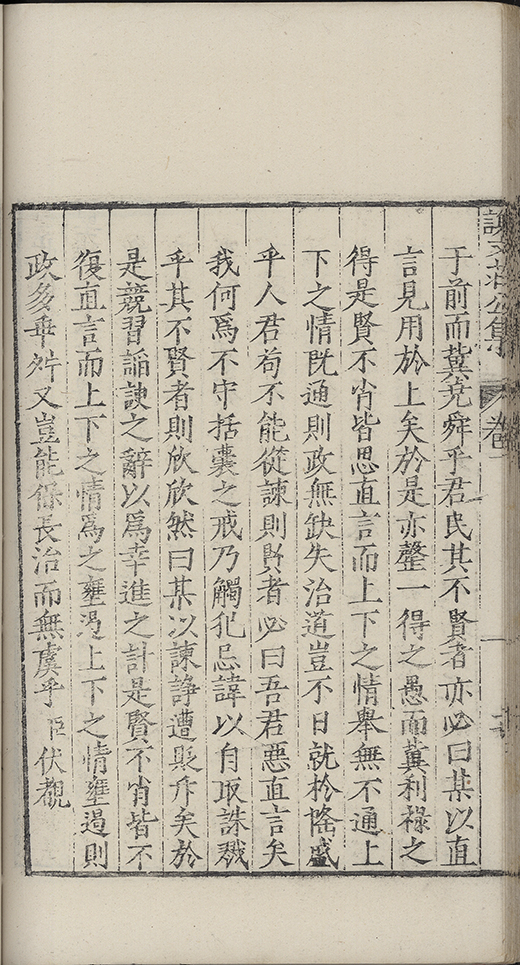 于前而冀堯舜乎君民其不賢者亦必曰某以直
言見用於上矣於是亦罄一得之愚而冀利祿之
得是賢不肖皆思直言而上下之情舉無不通上
下之情既通則政無缺失治道豈不日就於隆盛
乎人君苟不能從諫則賢者必曰吾君惡直言矣
我何爲不守括囊之戒乃觸犯忌諱以自取誅戮
乎其不賢者則欣欣然曰某以諫諍遭貶斥矣於
是競習謟諛之辭以爲幸進之計是賢不肖皆不
復直言而上下之情爲之壅遏上下之情壅遏則
政多乖舛又豈能保長治而無虞乎臣伏覩